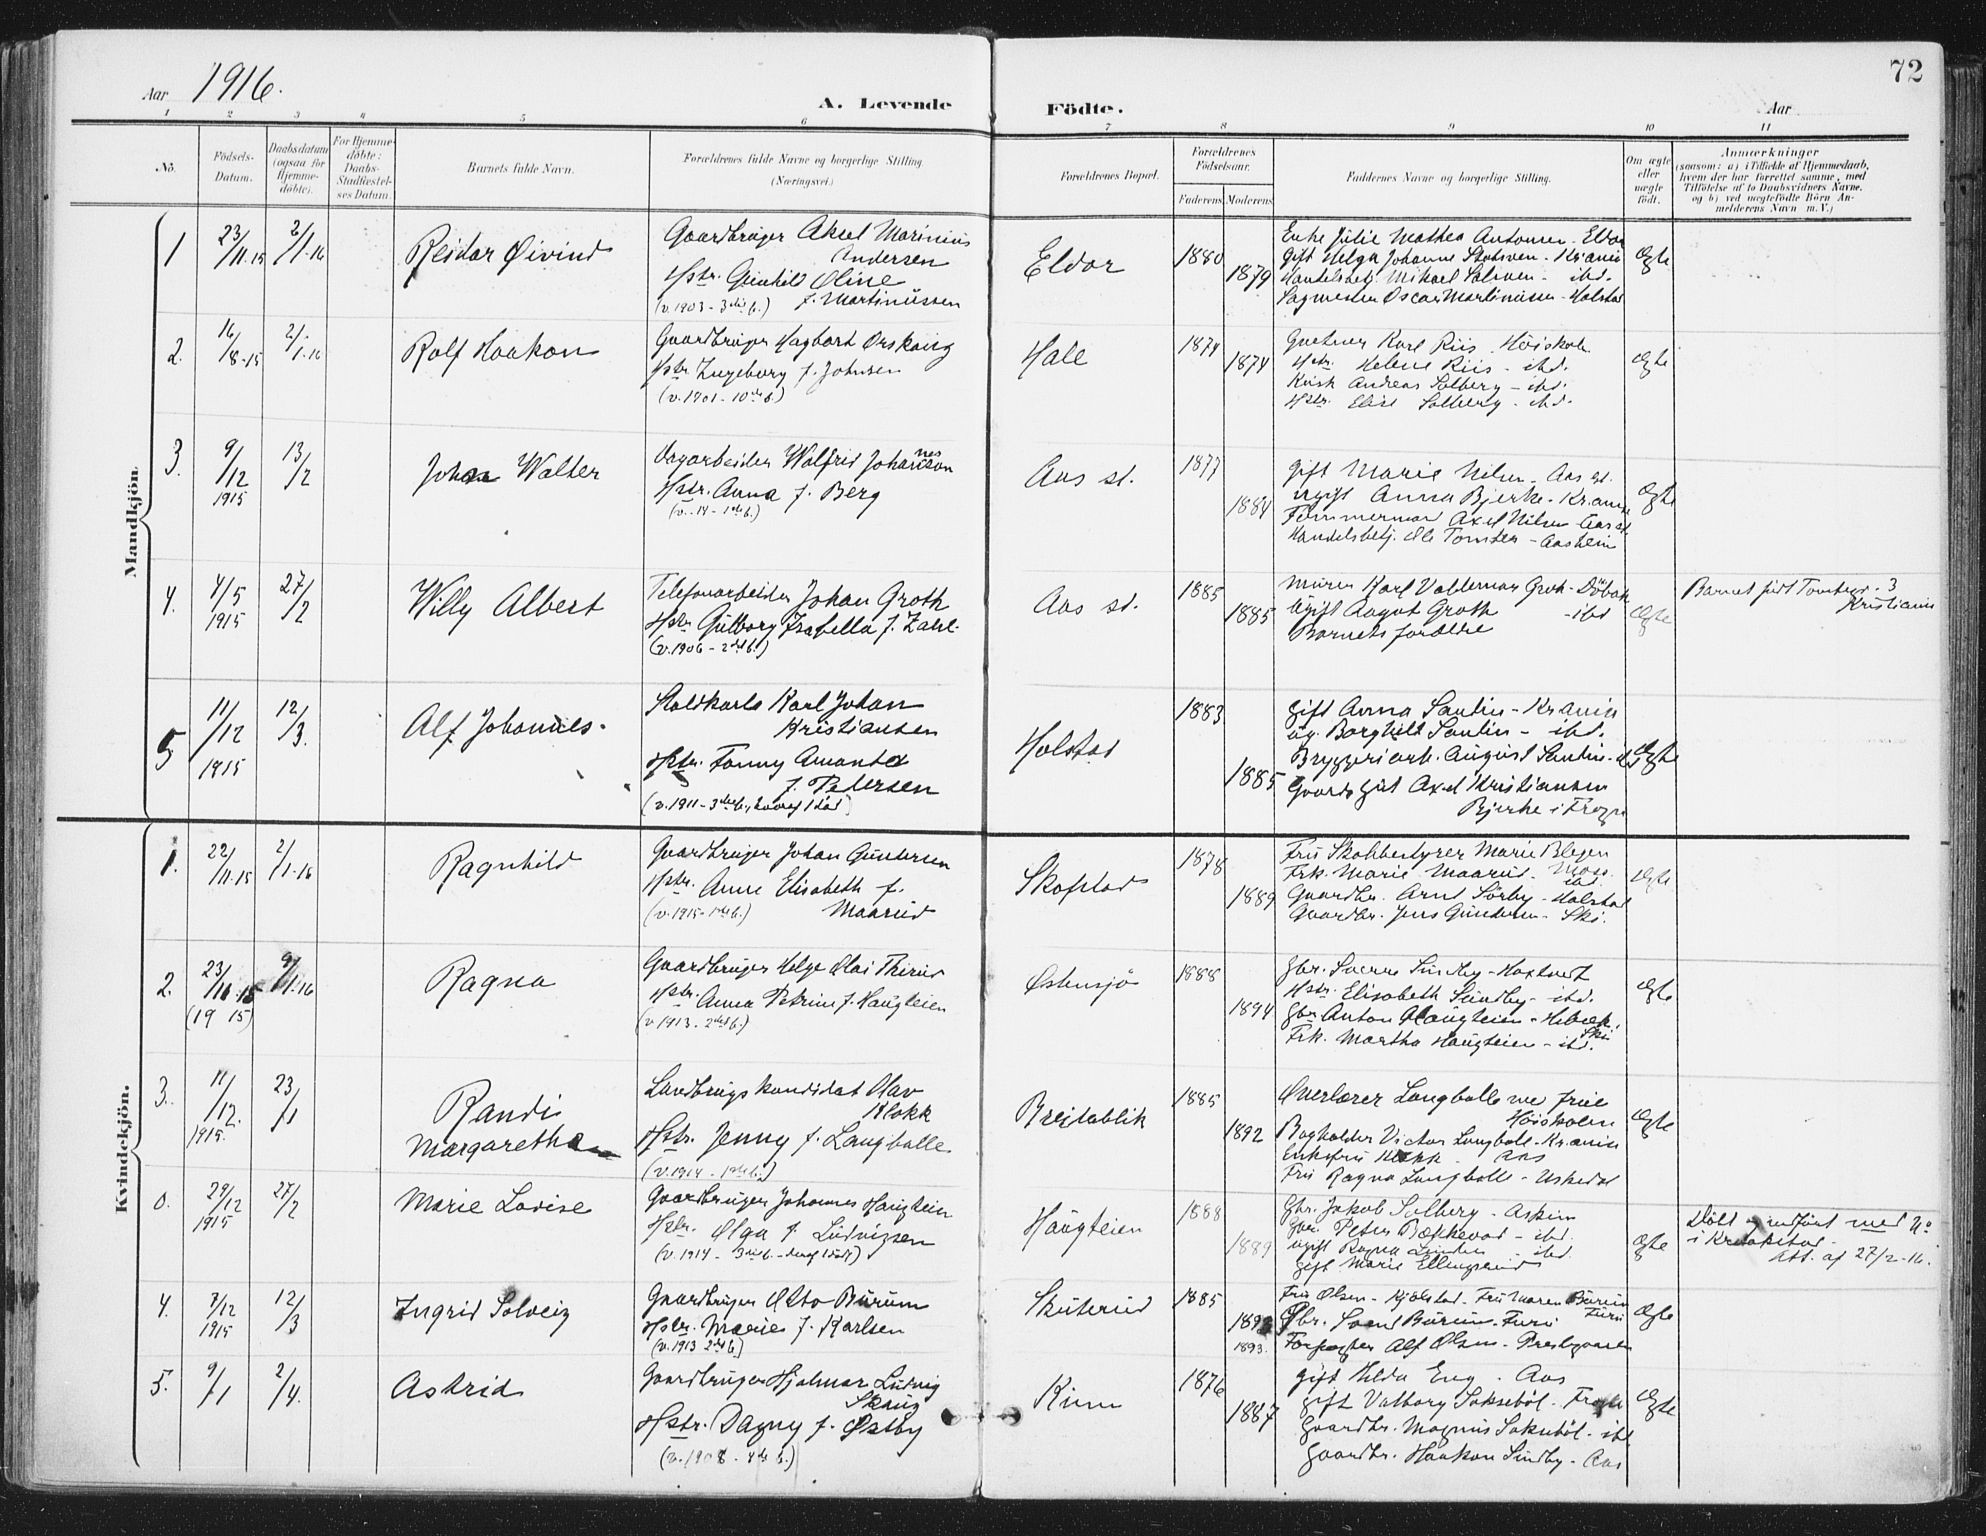 72
Aar 1916.
A. Levende Födte.
Aar
1 2 3 4 5 6 7 8 9 10 11
No.
Födsels-Datum.
Daabsdatum (ogsaa for Hjemmedöbte).
For Hjemmedöbte: Daabs-Stadfæstelses Datum.
Barnets fulde Navn.
Forældrenes fulde Navne og borgerlige Stilling (Næringsvei.)
Forældrenes Bopæl.
Forældrenes Födselsaar.
Faderens Moderens
Faddernes Navne og borgerlige Stilling.
Om ægte eller uægte födt.
Anmærkninger
(saasom: a) i Tilfælde af Hjemmedaab, hvem der har forrettet samme, med Tilföielse af to Daabsvidners Navne, og b) ved uægtefödte Börn Anmelderens Navn m. V.)
Mandkjön.
1 23/11-15 2/1-16 Reidar Øivind
Gaardbruger Aksel Marinius
Andersen
Hstr. Gunhild Oline
f. Martinussen
(v. 1903 - 3die b.)
Eldor 1880 1879
Enke Julie Mathea Antonsen - Eldor
Gift Helga Johanne - Krania
Handelsbetj. Mikael - ibd.
Sagmester Oscar Martinussen - Holstad
Ægte
2. 16/8-15 2/1-16 Rolf Haakon
Gaardbruger Hagbart Orskaug
Hstr. Ingeborg f. Johnsen
(v. 1901 - 10de b.)
Hale 1874 1874
Gartner Karl Riis Höiskolen
Hstr. Helene Riis - ibd.
Kusk Andreas Solberg - ibd.
Hstr. Elise Solberg - ibd.
Ægte
3. 9/12 1915 13/2 Johan Walter
Dagarbeider Walfrid Johannesson
Hstr. Anna f. Berg
(v. -14 - 1ste b.)
Aas st. 1877 1884
Gift Marie Nilsen - Aas st.
Ugift Anna Bjerke - Krania
Tømmermand Axel Nilsen - Aas st.
Handelsbetj. Ole Tomter - Aasheim
Ægte
4. 4/5 1915 27/2 Willy Albert
Telefonarbeider Johan Groth
Hstr. Gutborg Isabella f. Zahl.
(v. 1906 - 2det b.)
Aas st. 1885 1885
Murer Karl Valdemar Groth - Döbak
Ugift Aagot Groth - ibd
Barnets forældre
Ægte
Barnet födt 3
Kristiania
5 11/12 1915 12/3. Alf Johannes.
Staldkarls Karl Johan
Kristiansen
Hstr. Fanny Amanda
f. Petersen
(v. 1911 - 3die b., 1 död)
Holstad 1883 1885
Gift Anna Santin - Krania
Ug. Borghild Santin - ibd.
Bryggeriarb. August Santin - ibd
Gaardsgut Axel Kristiansen
Bjerke i Frogn
Ægte
Kvindekjön.
1. 22/11-15 2/1-16 Ragnhild
Gaardbruger Johan Gundersen
Hstr. Anne Elisabeth f.
Maarud
(v. 1915 - 1ste b.)
Skofstad 1878 1889
Fru Skobestyrer Marie Blegen
Frk. Marie Maarud - Moss
ibd.
Gaardbr. Arnt Sörby - Holstad
Gaardbr. Jens Gundersen - Ski.
Ægte
2. 23/10-15 (1915) 9/1-16 Ragna
Gaardbruger Helge Olai Thirud
Hstr. Anna Petrine f. Haugteien
(v 1913 - 2det b.)
Østensjö 1888 1894
Gbr. Sverre Sundby - Haxtvedt
Hstr. Elisabeth Sundby - ibd.
Gbr Anton Haugteien - Hebæk,
Ski
Frk. Martha Haugteien - ibd.
Ægte
3. 11/12. 1915. 23/1 Randi
Margaretha
Landbrugskandidat Olav
Klokk
Hstr. Jenny f. Langballe
(v. 1914 - 1ste b.)
Breidablik 1885 1892
Overlærer Langballe med frue
Höiskolen
Bogholder Victor Langball - Krania
Enkefru Klokk - Aas
Fru Ragna Langballe - Askedal
Ægte
0. 29/12 1915 27/2 Marie Lovise
Gaardbruger Johannes Haugteien
Hstr. Olga f. Ludvigsen
(v. 1914 - 3die b. - 1 död)
Haugteien 1888 1889
Gbr. Jakob Solberg - Askim
Gbr. Peter Bækkevad - ibd.
Ugift Ragna - ibd.
Gift Marie Ellingsrud
Ægte
Döbt og indfört med No
i Kraakstad
Att. af 27/2-16.
4. 7/12 1915 12/3 Ingrid Solveig
Gaardbruger Otto Burum
Hstr. Marie f. Karlsen
(v. 1913 2det b.)
Skuterud 1885 1893.
Fru Olsen - Kjölstad - Fru Maren Burum
Furu
Gbr. Svend Burum - Furu
Forpagter Alf Olsen - Prestegaarden
Ægte
5. 9/1 2/4. Astrid
Gaardbruger Hjalmar Ludvig
Skaug
Hstr. Dagny f. Østby
(v. 1908 - 4de b.)
Rum 1876 1887
Gift Hilda Eng - Aas
Gift Valborg Saksebøl - Frogn
Gaardbr. Magnus Saksebøl - ibd
Gaardbr. Haakon Sundby - Aas
Ægte